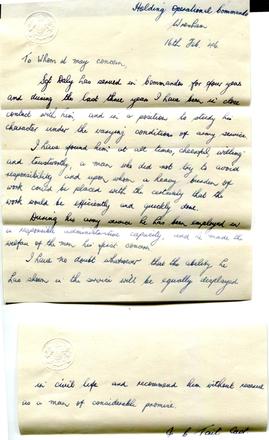 Holding Operational Commando
Wrexham
16th Feb. '46
To Whom it may concern,
Sgt Daly has served in Commandos for four years
and during the last three years I have been in close
contact with him, and in a position to study his
character under the varying conditions of army service.
I have found him at all times, cheerful, willing
and trustworthy, a man who did not try to avoid
responsibility and upon whom a heavy burden of
work could be placed with the certainty that the
work would be efficiently and quickly done.
During his army service he has been employed in
a responsible administrative capacity, and is made the
welfare of the men his first concern.
I have no doubt whatsoever that the ability he
has shown in the service will be equally displayed
in civil life and recommend him without reserve
as a man of considerable promise.
Capt